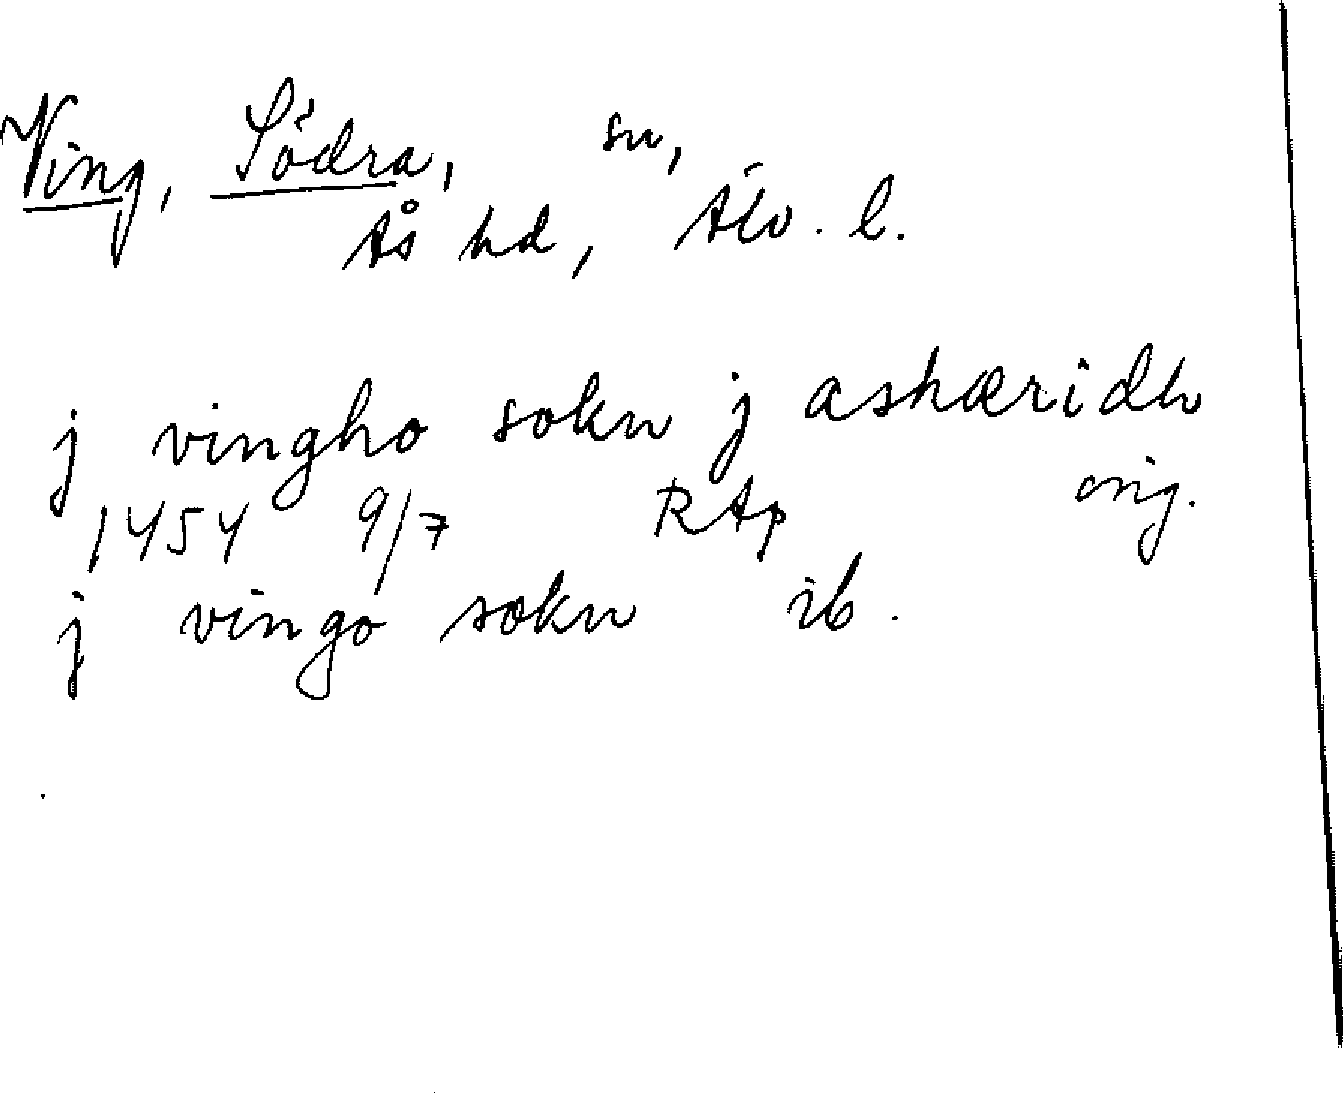 Ving, Södra, sn,
Ås hd, Älv. l.
j vingho sokn j ashæridh
1454 9/7 RAp orig.
j vingo sokn ib.